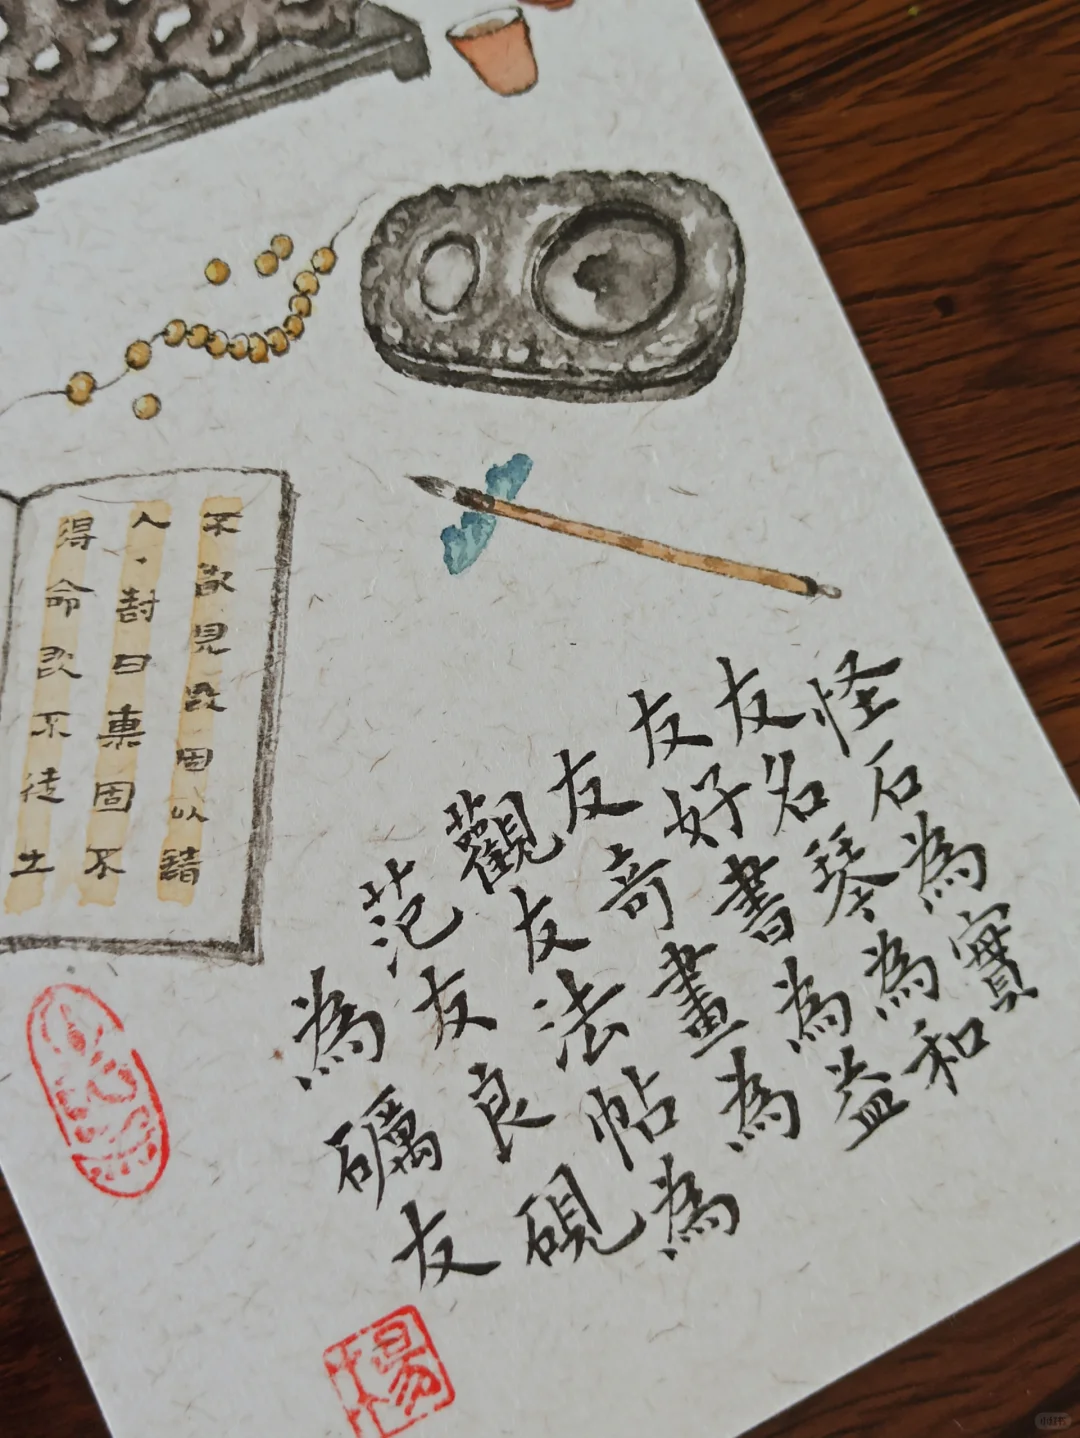 怪石為實
友名琴為和
友好書為益
友奇畫為
觀友法帖為
范友良硯
為礪友
不見固以
人封曰固不
得命不徒土